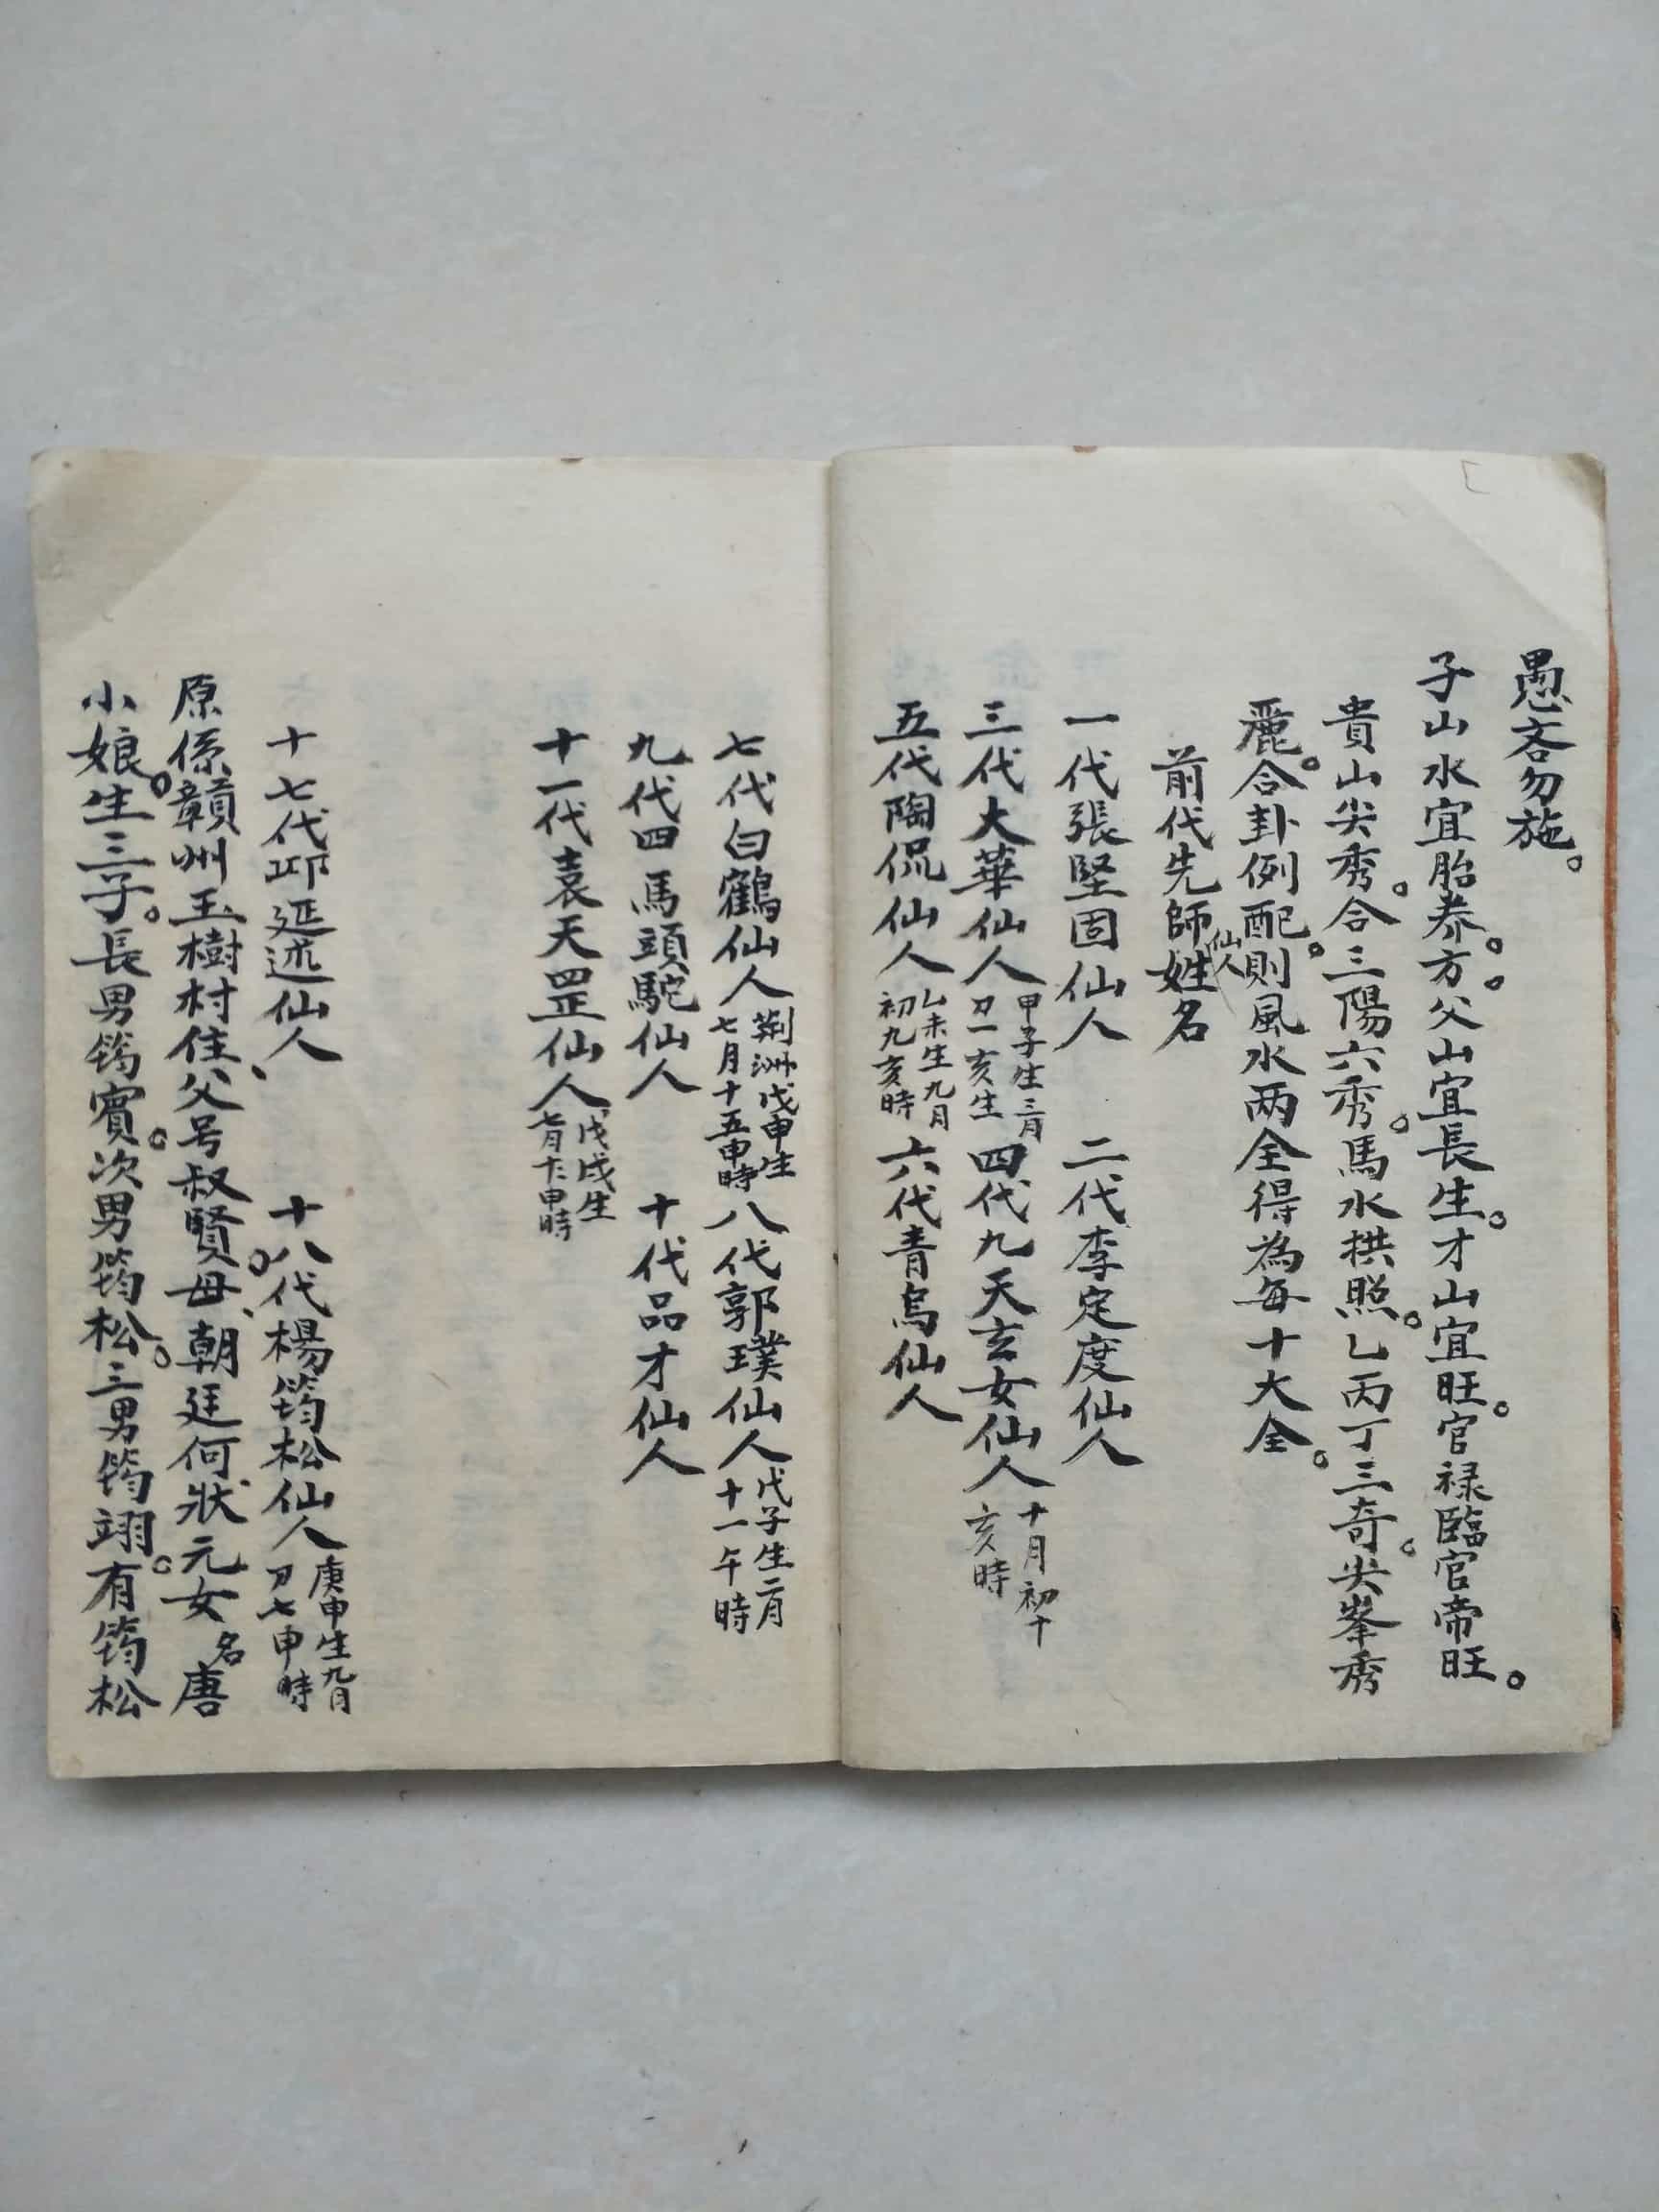 愚吝勿施。
子山水宜胎养。方。父山宜長生。才山宜旺。官禄臨官帝旺。
貴山尖秀。合三陽六秀。馬水拱照。乙丙丁三奇。尖峯秀
麗。合卦例配。則風水两全得為每十大全。
前代先師仙人姓名
一代張堅固仙人 二代李定度仙人
三代大華仙人 甲子生三月初一亥生 四代九天玄女仙人 十月初十亥時
五代陶侃仙人 乙未生九月初九亥時 六代青烏仙人
七代白鶴仙人 荆洲戊申生七月十五申時 八代郭璞仙人 戊子生二月十一午時
九代四馬頭駝仙人 十代品才仙人
十一代袁天罡仙人 戊戌生七月十二申時
十七代邱延述仙人 十八代楊筠松仙人 庚申生九月初七申時
原係贛州玉樹村住、父号叔賢。母、朝廷何狀元女名唐
小娘。生三子。長男筠賓。次男筠松。三男筠翊。有筠松